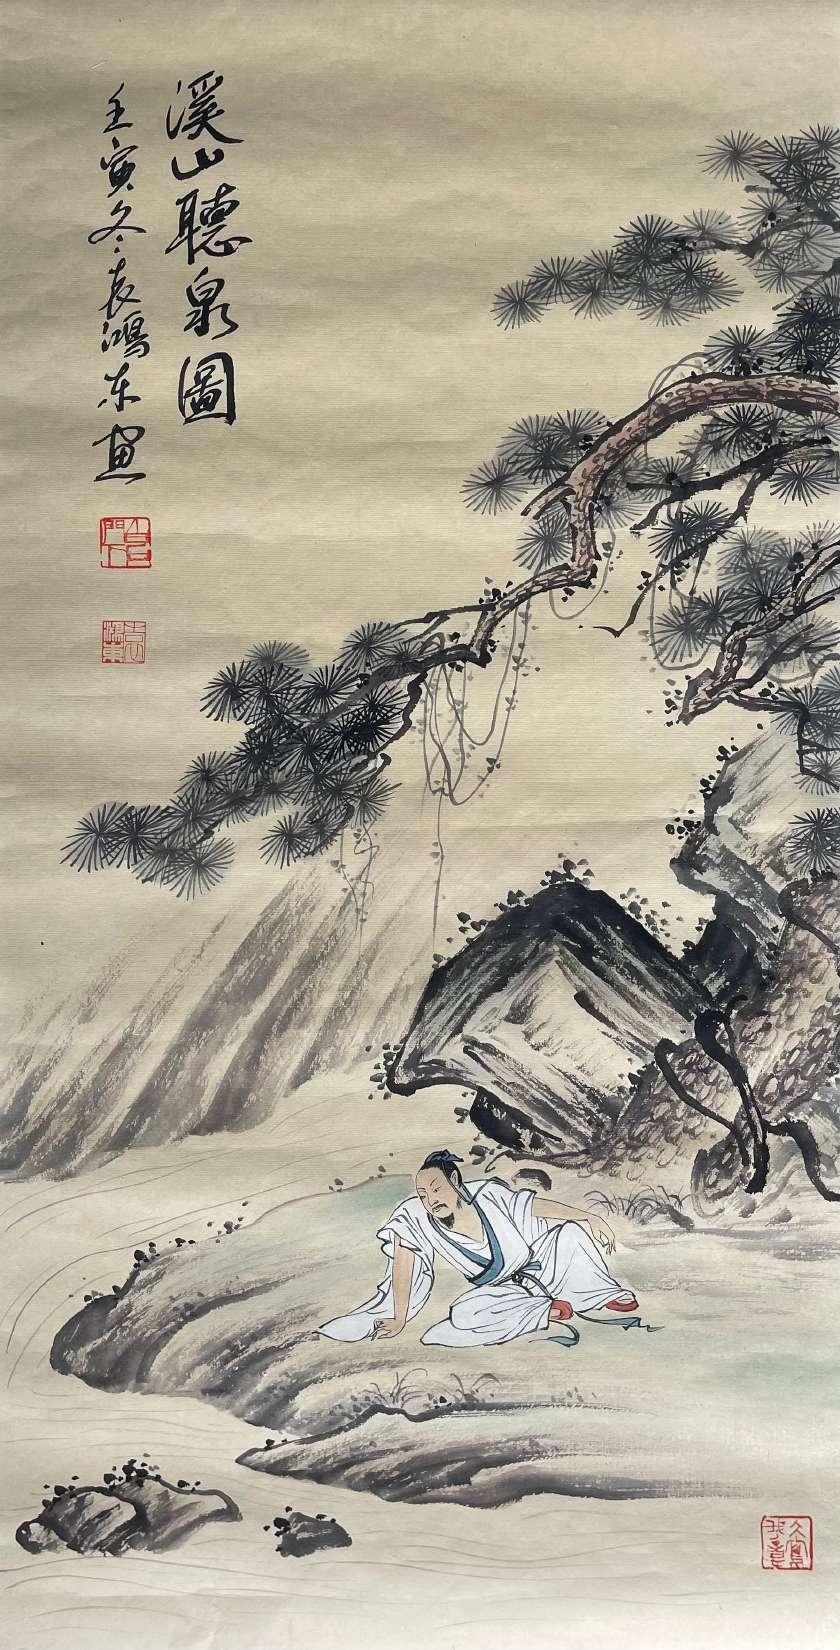 溪山聽泉圖
壬寅冬袁鴻东画
袁鴻東